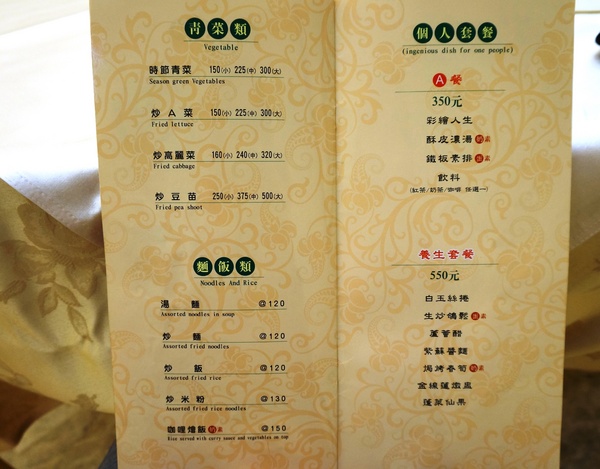 青菜類
Vegetable
時節青菜 150(小) 225(中) 300(大)
Season green Vegetables
炒A菜 150(小) 225(中) 300(大)
Fried lettuce
炒高麗菜 160(小) 240(中) 320(大)
Fried cabbage
炒豆苗 250(小) 375(中) 500(大)
Fried pea shoot
麵飯類
Noodles And Rice
湯麵 @120
Assorted noodles in soup
炒麵 @120
Assorted fried noodles
炒飯 @120
Assorted fried rice
炒米粉 @130
Assorted fried rice noodles
咖哩燴飯 奶素 @150
Rice served with curry sauce and vegetables on top
個人套餐
(ingenious dish for one people)
A餐
350元
彩繪人生
酥皮濃湯 奶素
鐵板素排 素
飲料
(紅茶/奶茶/咖啡 任選一)
養生套餐
550元
白玉絲捲
生炒鴿鬆 素
蘆薈醋
紫蘇蕎麵
焗烤春筍 奶素
金線蓮燉盅
蓬萊仙果